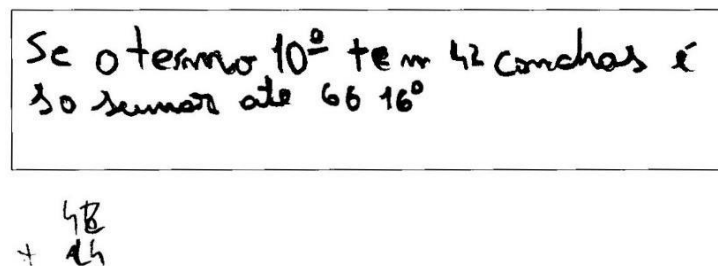 Se o termo 10º tem 42 conchas é
so sumar ate 66 16º
+ 24